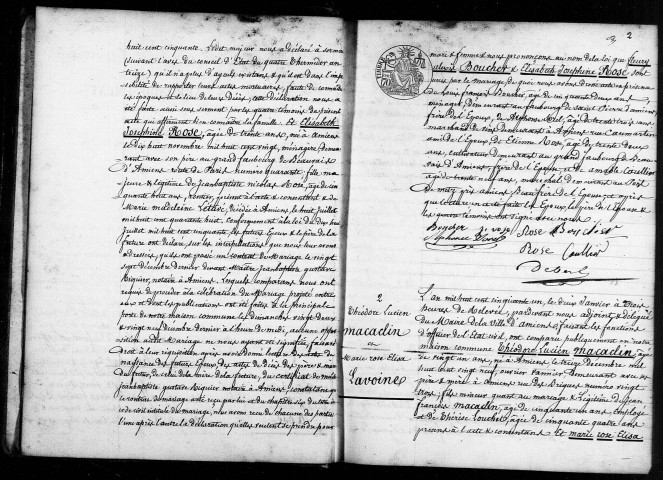 huit cent cinquante. Ledit majeur nous a déclaré à serment
(suivant l'avis du conseil d'Etat du quatre thermidor an
treize) qu'il n'a plus d'ayeuls existans & qu'il est dans l'impos
sibilité de rapporter leurs actes mortuaires, faute de connaitre
les époques & le lieu de leurs décès, cette déclaration nous a
été faite aussi sous serment par les quatre témoins du présent
acte qui affirment bien connaître sa famille. Et Elisabeth
Josephine Rose, âgée de trente ans, née à Amiens
le dix huit novembre mil huit cent vingt, ménagère demeu
rant avec son père au grand faubourg de Beauvais
d'Amiens route de Paris numéro quarante, fille ma
jeure & légitime de Jean baptiste nicolas Rose, âgé de cin
quante huit ans, rentier, présent à l'acte & consentant & de
Marie madeleine, décédée à Amiens, le huit juillet
mil huit cent quarante huit. Conformément à la loi du dix huit
Juillet mil huit cent cinquante, les futurs Epoux & le père de la
future ont déclaré, sur les interpellations que nous leur avons
adressées, qu'ils ont passé un contrat de Mariage le vingt
sept décembre dernier devant Maître Jean baptiste gustave
Riquier, notaire à Amiens. Lesquels comparans nous ont
requis de procéder à la célébration du Mariage projeté entre
eux & dont les publications ont été faites à la principale
porte de notre maison commune les dimanches vingt deux
& vingt neuf décembre dernier à l'heure de midi, aucune oppo
sition audit Mariage ne nous ayant été signifiée, faisant
droit à leur réquisition après avoir donné lecture des actes de
naissance des futurs Epoux, des actes de décès des père & mère
du futur, de celui de la mère de la future, du certificat de maître
Jean baptiste gustave Riquier notaire à Amiens, constatant que
le contrat de mariage a été reçu par lui et du chapitre six du titre
du code civil intitulé du mariage, nous avons reçu de chacune des parties
l'une après l'autre la déclaration qu'elles veulent se prendre pour
2
mari & femme & nous prononçons au nom de la loi que fleury
Boucher & Elisabeth Josephine Rose sont
unis par le mariage. de quoi nous avons dressé acte en présence
de Louis françois Boucher, âgé de cinquante deux ans,
ménager, demeurant au faubourg de Saint Pierre d'Amiens
frère de l'Epoux, de Alphonse Duval, âgé de trente trois ans
marchand de vin demeurant à Amiens rue Caumartin
ami de l'Epoux, de Etienne Rose, âgé de trente deux
ans, cultivateur demeurant au grand faubourg de Beau
vais d'Amiens, frère de l'Epouse & de amable Coullier
âgé de trente neuf ans, maréchal demeurant au Petit
St Jean lès amiens beau frère de l'Epouse, et après
que lecture en a été faite les Epoux, le père de l'Epouse &
les quatre témoins ont signé avec nous
Boucher j n rose Rose Boucher
Alphonse Duval Rose Coullier
2
Théodore Lucien
Macaclin
&
Marie rose Elisa
Lavoine
L'an mil huit cent cinquante un, le deux Janvier à Trois
heures de relevée, pardevant nous adjoint & délégué
du Maire de la Ville d'Amiens, faisant les fonctions
d'officier de l'Etat civil, ont comparu publiquement en notre
maison commune Théodore Lucien Macaclin, âgé
de vingt un ans, né à Amiens le treize décembre mil
huit cent vingt neuf, ouvrier Vannier, demeurant avec ses
père & mère à Amiens rue des Bregues numéro vingt
trois, fils mineur quant au mariage & légitime de Jean
françois Macaclin, âgé de cinquante un ans Employé
et de Thérèse Louchet, âgée de cinquante quatre ans,
présens à l'acte & consentans. Et marie rose Elisa